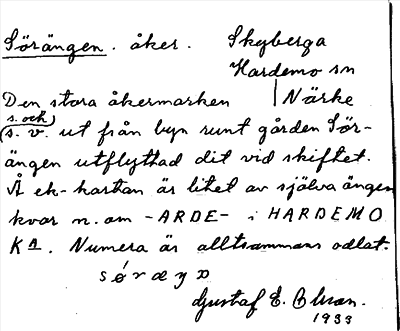 Sörängen. åker. Skyberga
Hardemo sn
Den stora åkermarken | Närke
s. och
s. v. ut från byn runt gården Sör-
ängen utflyttad dit vid skiftet.
Å ek-kartan är litet av själva ängen
kvar n. om -ARDE- i HARDEMO
Ka. Numera är alltsammans odlat.
Gustaf E. Olsson.
1933